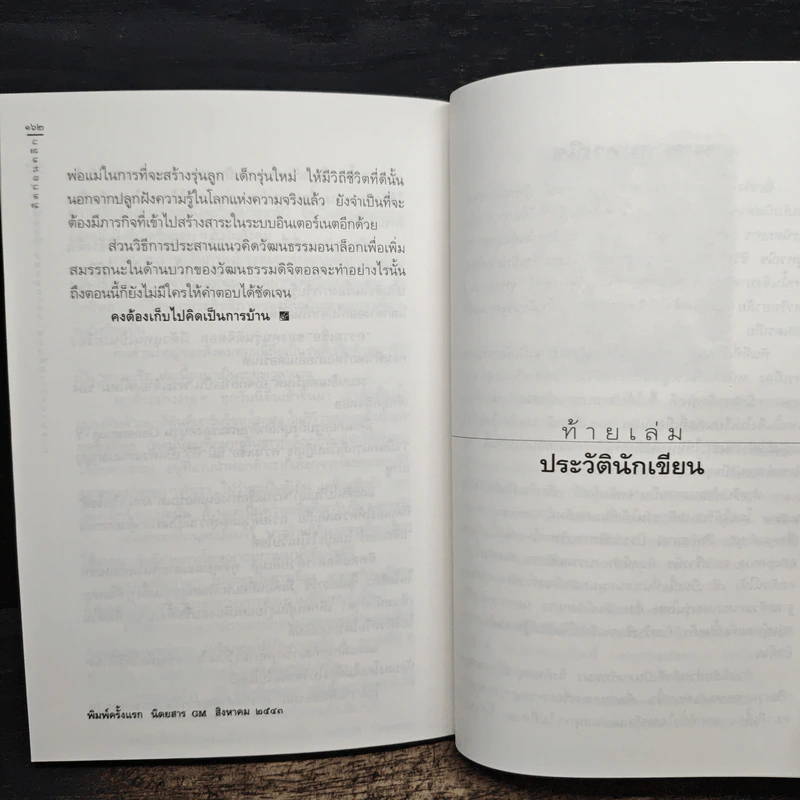 ๑๖๒
พ่อแม่ในการที่จะสร้างรุ่นลูก เด็กรุ่นใหม่ ให้มีวิถีชีวิตที่ดีนั้น
นอกจากปลูกฝังความรู้ในโลกแห่งความจริงแล้ว ยังจำเป็นที่จะ
ต้องมีภารกิจที่เข้าไปสร้างสาระในระบบอินเตอร์เนตอีกด้วย
ส่วนวิธีการประสานแนวคิดวัฒนธรรมอนาล็อกเพื่อเพิ่ม
สมรรถนะในด้านบวกของวัฒนธรรมดิจิตอลจะทำอย่างไรนั้น
ถึงตอนนี้ก็ยังไม่มีใครให้คำตอบได้ชัดเจน
คงต้องเก็บไปคิดเป็นการบ้าน
พิมพ์ครั้งแรก นิตยสาร GM สิงหาคม ๒๕๔๓
ท้ายเล่ม
ประวัตินักเขียน